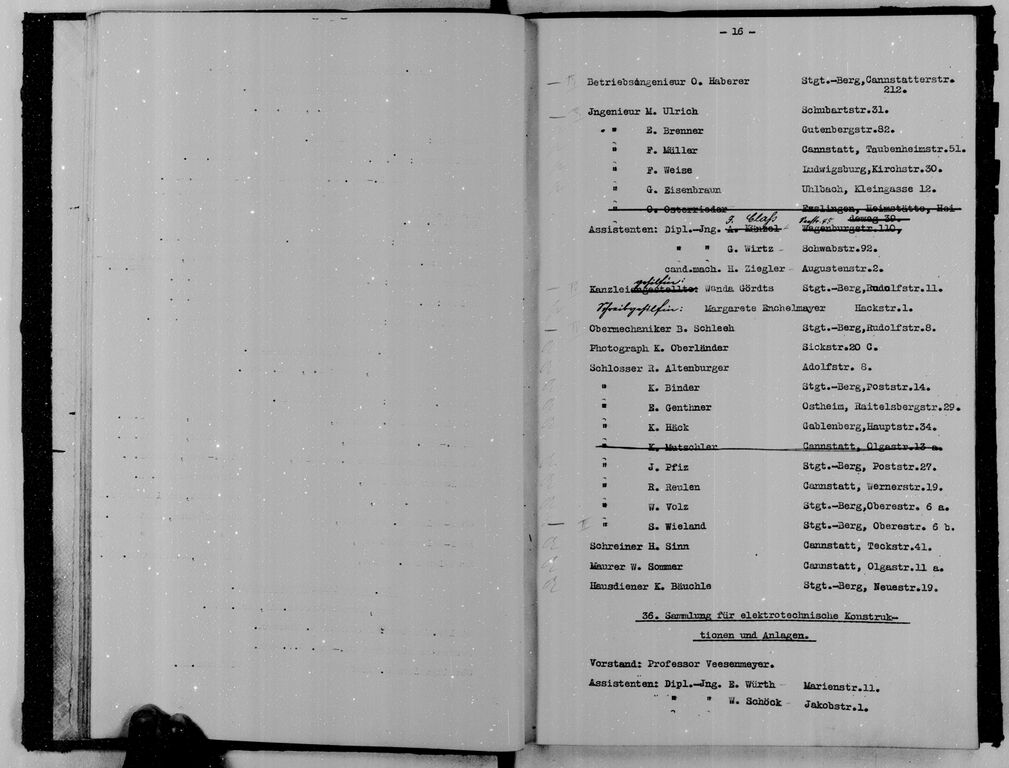 - 16 -
Betriebsingenieur O. Haberer Stgt.-Berg,Cannstatterstr.
212.
Jngenieur M. Ulrich Schubartstr.31.
" E. Brenner Gutenbergstr.82.
" F. Müller Cannstatt, Taubenheimstr.51.
" F. Weise Ludwigsburg,Kirchstr.30.
" G. Eisenbraun Uhlbach, Kleingasse 12.
" O. Osterrieder Esslingen, Heimstätte, Hei-
J. Claß deweg 39.
Assistenten: Dipl.-Jng. Wagenburgstr.110,
" " G. Wirtz - Schwabstr.92.
cand.mach. H. Ziegler - Augustenstr.2.
gehilfin:
Kanzleiangestellte: Wanda Gördts Stgt.-Berg,Rudolfstr.11.
Schreibgehilfin: Margarete Enchelmayer Hackstr.1.
Obermechaniker B. Schleeh Stgt.-Berg,Rudolfstr.8.
Photograph K. Oberländer Sickstr.20 C.
Schlosser R. Altenburger Adolfstr. 8.
" K. Binder Stgt.-Berg,Poststr.14.
" E. Genthner Ostheim, Raitelsbergstr.29.
" K. Häck Gablenberg,Hauptstr.34.
" K. Mutschler Cannstatt, Olgastr.13 a.
" J. Pfiz Stgt.-Berg, Poststr.27.
" R. Reulen Cannstatt, Wernerstr.19.
" W. Volz Stgt.-Berg,Oberestr. 6 a.
" S. Wieland Stgt.-Berg, Oberestr. 6 b.
Schreiner H. Sinn Cannstatt, Teckstr.41.
Maurer W. Sommer Cannstatt, Olgastr.11 a.
Hausdiener K. Bäuchle Stgt.-Berg, Neuestr.19.
36. Sammlung für elektrotechnische Konstruk-
tionen und Anlagen.
Vorstand: Professor Veesenmeyer.
Assistenten: Dipl.-Jng. E. Würth - Marienstr.11.
" " W. Schöck - Jakobstr.1.